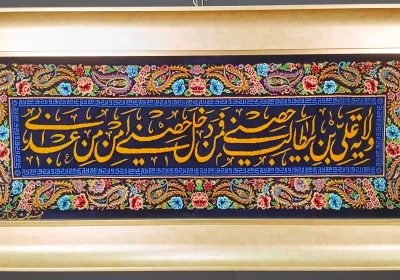 ولایة علی بن ابیطالب حصنی فمن دخل حصنی امن من عذابی